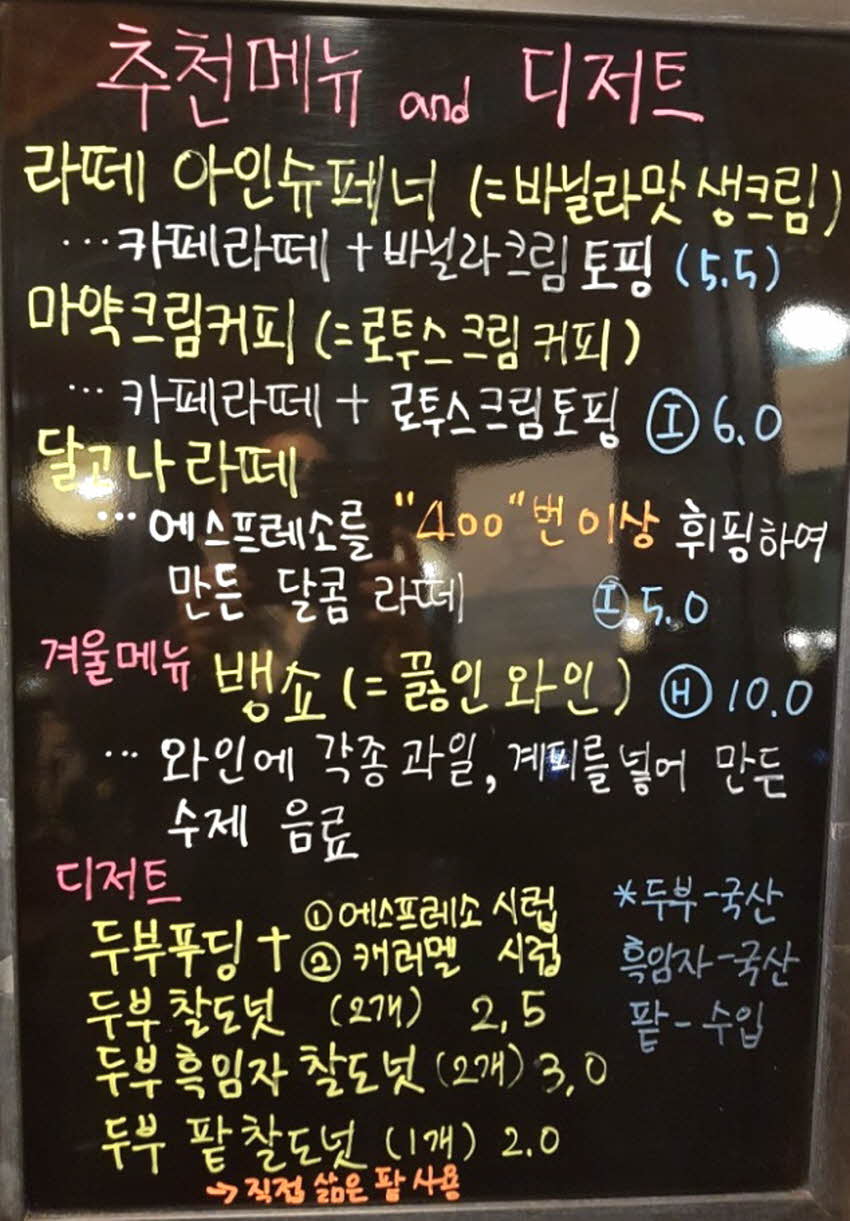 추천메뉴 and 디저트
라떼 아인슈페너 (=바닐라맛 생크림)
...카페라떼 + 바닐라크림 토핑 (5.5)
마약크림커피 (=로투스크림커피)
... 카페라떼 + 로투스크림토핑 Ⓘ 6.0
달고나 라떼
... 에스프레소를 "400"번 이상 휘핑하여
만든 달콤 라떼 Ⓘ 5.0
겨울메뉴 뱅쇼 (=끓인 와인) Ⓗ 10.0
... 와인에 각종 과일, 계피를 넣어 만든
수제 음료
디저트
두부푸딩 + ① 에스프레소 시럽
② 캐러멜 시럽
두부 찰도넛 (2개) 2,5
두부 흑임자 찰도넛 (2개) 3,0
두부 팥 찰도넛 (1개) 2.0
→ 직접 삶은 팥 사용
*두부-국산
흑임자-국산
팥 - 수입